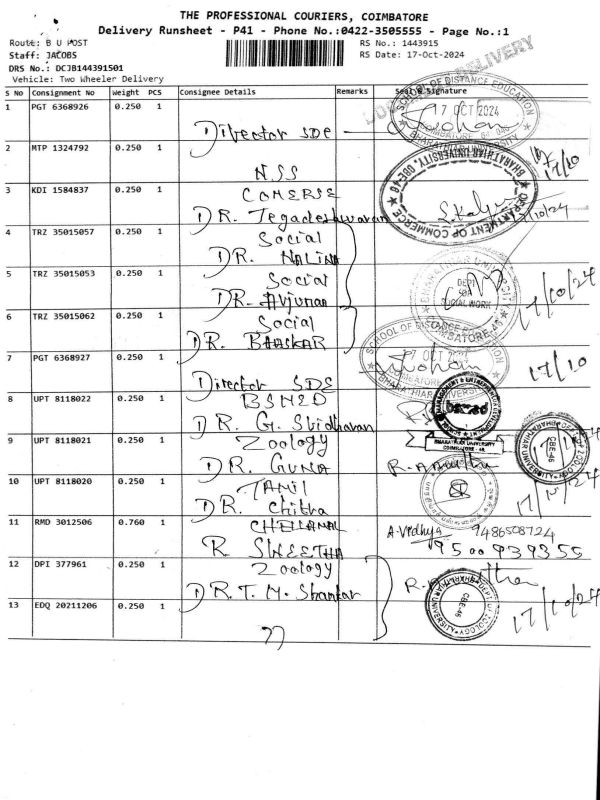 THE PROFESSIONAL COURIERS, COIMBATORE
Delivery Runsheet - P41 - Phone No.:0422-3505555 - Page No.:1
Route: B U POST
RS No.: 1443915
Staff: JACOBS
RS Date: 17-Oct-2024
DRS No.: DCJB144391501
Vehicle: Two Wheeler Delivery
DELIVERY
S No Consignment No Weight PCS Consignee Details Remarks Seal & Signature
1 PGT 6368926 0.250 1
Director SDE
SCHOOL OF DISTANCE EDUCATION
17 OCT 2024
2 MTP 1324792 0.250 1
NSS
17/10
BHARATHIAR UNIVERSITY, CBE-46
DEPARTMENT OF COMMERCE
3 KDI 1584837 0.250 1
COMERSE
DR. Tegadeshwaran
4 TRZ 35015057 0.250 1
Social
DR. NALINA
5 TRZ 35015053 0.250 1
Social
DR. Arjunan
BHARATHIAR UNIVERSITY
DEPT
SOCIAL WORK
COIMBATORE-46
17/10/24
6 TRZ 35015062 0.250 1
Social
DR. BHASKAR
SCHOOL OF DISTANCE EDUCATION
17 OCT
7 PGT 6368927 0.250 1
Director SDE
17/10
8 UPT 8118022 0.250 1
BSMED
DR. G. Sridharan
bsmed
BHARATHIAR UNIVERSITY
COIMBATORE - 46
9 UPT 8118021 0.250 1
Zoology
DR. GUNA
BHARATHIAR UNIVERSITY
DEPT OF ZOOLOGY
CBE-46
10 UPT 8118020 0.250 1
TAMIL
DR. Chitra
11 RMD 3012506 0.760 1
R SWEETHA
A.Vidhya 9486508724
9500939355
12 DPI 377961 0.250 1
Zoology
DR. T. M. Shankar
DEPT OF ZOOLOGY
CBE-46
17/10/24
13 EDQ 20211206 0.250 1